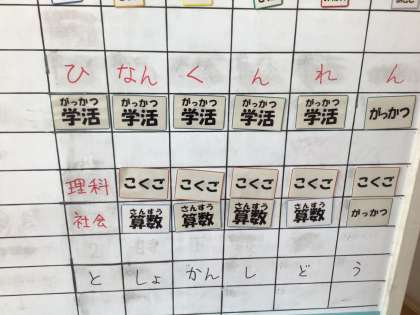 ひ なん く ん れ ん
がっかつ がっかつ がっかつ がっかつ がっかつ
学活 学活 学活 学活 学活 がっかつ
理科 こくご こくご こくご こくご こくご
さんすう さんすう さんすう さんすう
社会 算数 算数 算数 算数 がっかつ
と しょ かん し ど う